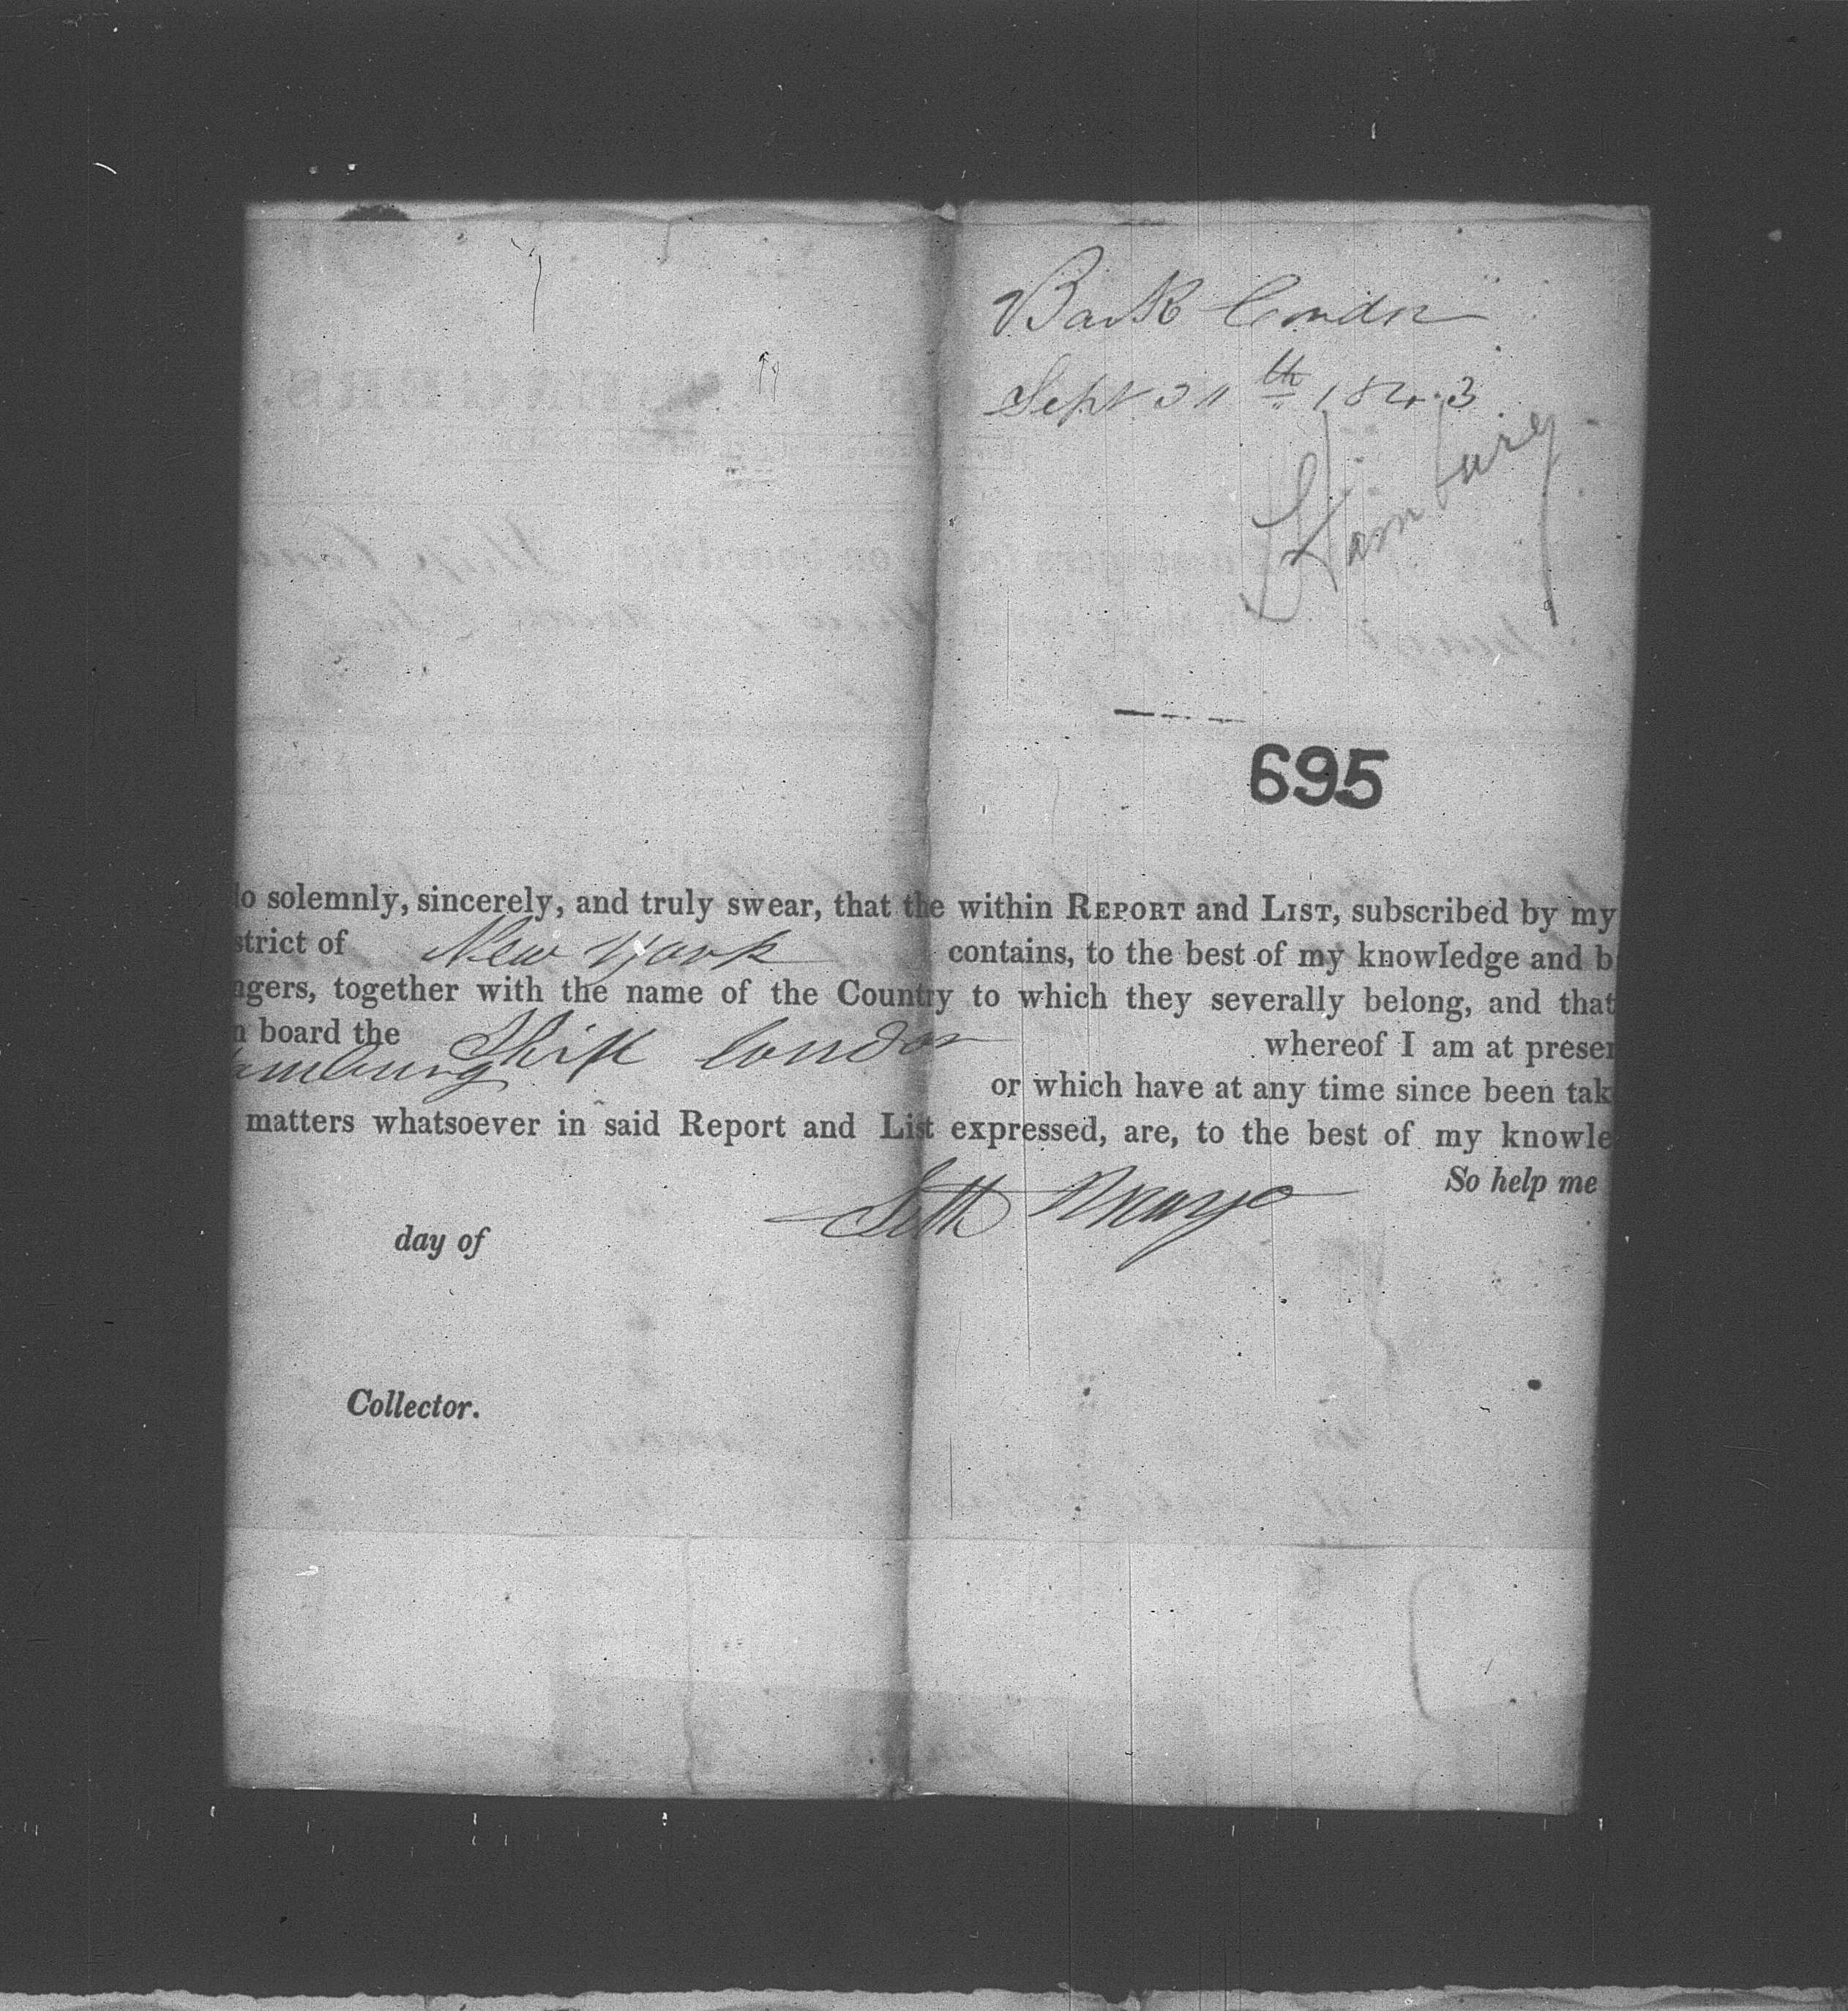 Bark Condor
Sept th 1843
Hamburg
695
do solemnly, sincerely, and truly swear, that the within REPORT and LIST, subscribed by my
strict of New York contains, to the best of my knowledge and b
ngers, together with the name of the Country to which they severally belong, and that
n board the Ship Condor whereof I am at presen
amburg or which have at any time since been tak
matters whatsoever in said Report and List expressed, are, to the best of my knowle
So help me
Seth Mayo
day of
Collector.